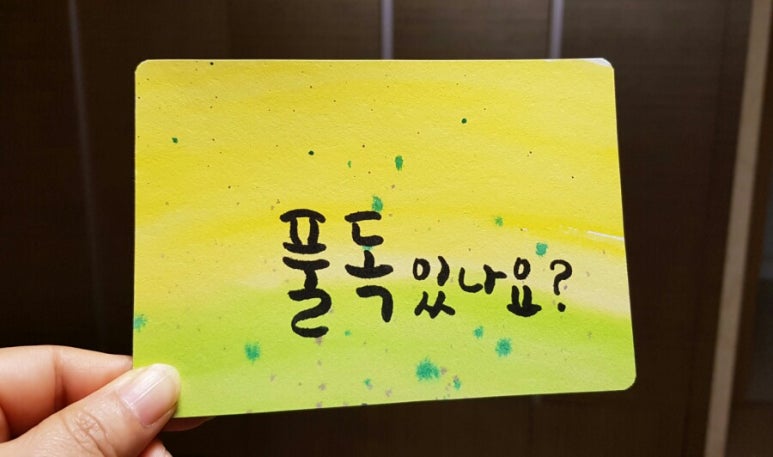 풀독 있나요?